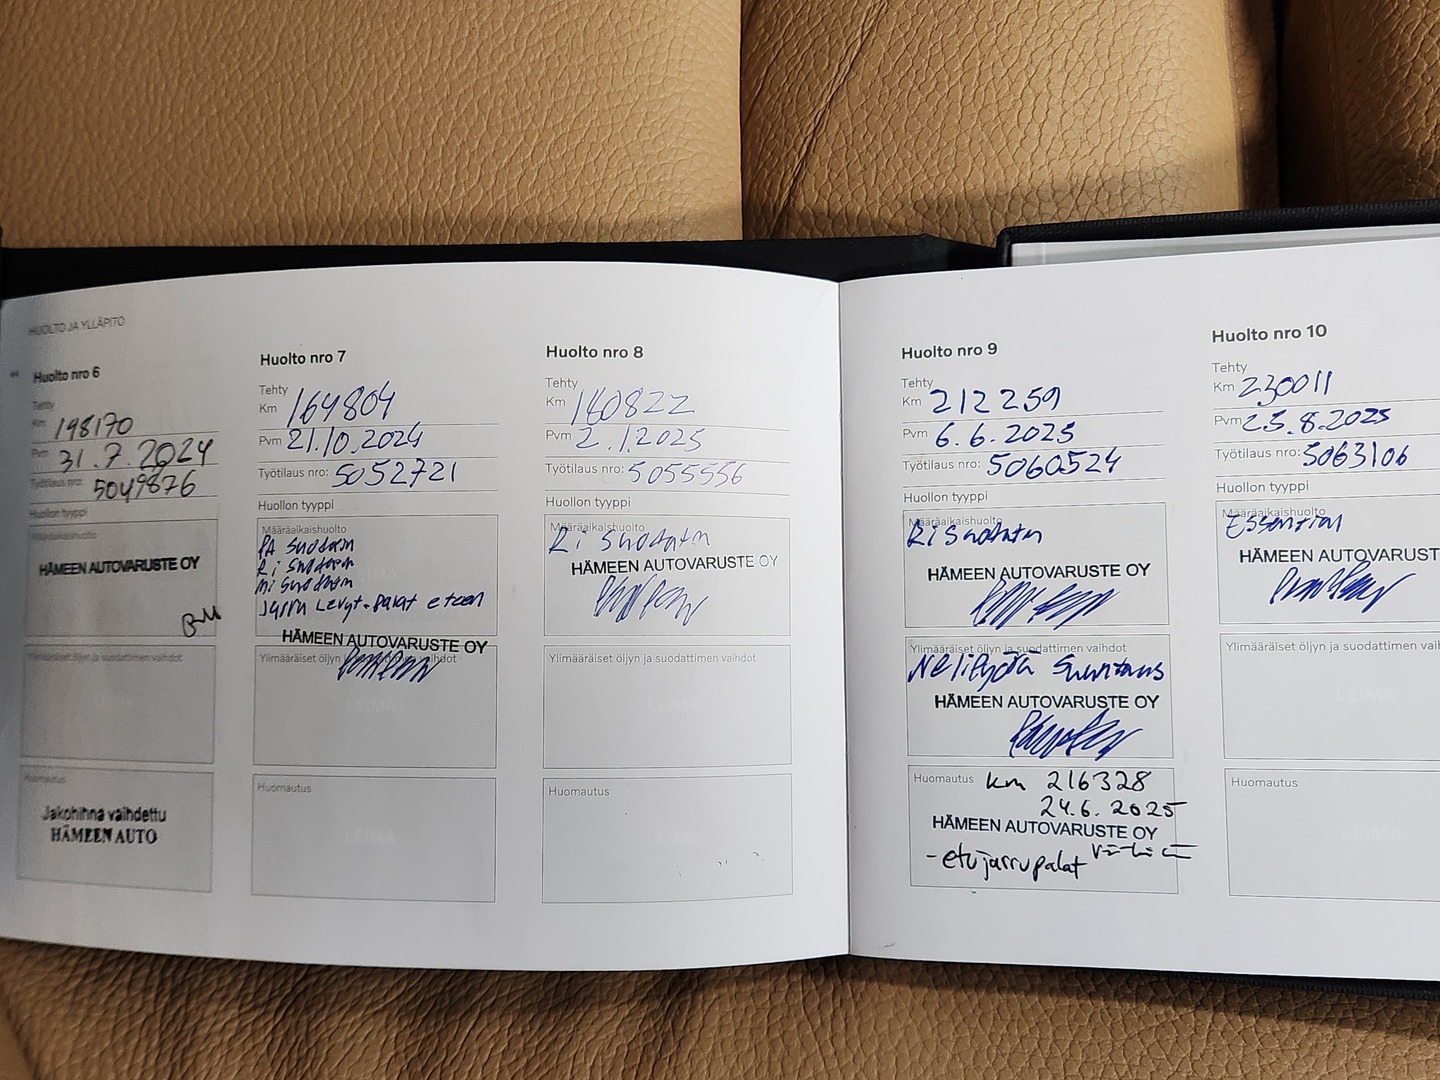 HUOLTO JA YLLÄPITO
Huolto nro 6
Tehty
Km 148170
Pvm 31.7.2024
Työtilaus nro: 5049876
Huollon tyyppi
Määräaikaishuolto
HÄMEEN AUTOVARUSTE OY
Ylimääräiset öljyn ja suodattimen vaihdot
Huomautus
Jakohihna vaihdettu
HÄMEEN AUTO
Huolto nro 7
Tehty
Km 164804
Pvm 21.10.2024
Työtilaus nro: 5052721
Huollon tyyppi
Määräaikaishuolto
PA suodatin
Ri suodatin
mi suodatin
Jarru Levyt+Palat eteen
HÄMEEN AUTOVARUSTE OY
Ylimääräiset öljyn ja suodattimen vaihdot
LEIMA
Huomautus
LEIMA
Huolto nro 8
Tehty
Km 180822
Pvm 2.1.2025
Työtilaus nro: 5055556
Huollon tyyppi
Määräaikaishuolto
Ri suodatin
HÄMEEN AUTOVARUSTE OY
Ylimääräiset öljyn ja suodattimen vaihdot
LEIMA
Huomautus
LEIMA
Huolto nro 9
Tehty
Km 212259
Pvm 6.6.2025
Työtilaus nro: 5060524
Huollon tyyppi
Määräaikaishuolto
Ri suodatin
HÄMEEN AUTOVARUSTE OY
Ylimääräiset öljyn ja suodattimen vaihdot
Nelipyörä Suuntaus
HÄMEEN AUTOVARUSTE OY
Huomautus km 216328
24.6.2025
HÄMEEN AUTOVARUSTE OY
- etujarrupalat
Huolto nro 10
Tehty
Km 230011
Pvm 25.8.2025
Työtilaus nro: 5063106
Huollon tyyppi
Määräaikaishuolto
Essential
HÄMEEN AUTOVARUST
Ylimääräiset öljyn ja suodattimen vaih
LEIMA
Huomautus
LEIMA